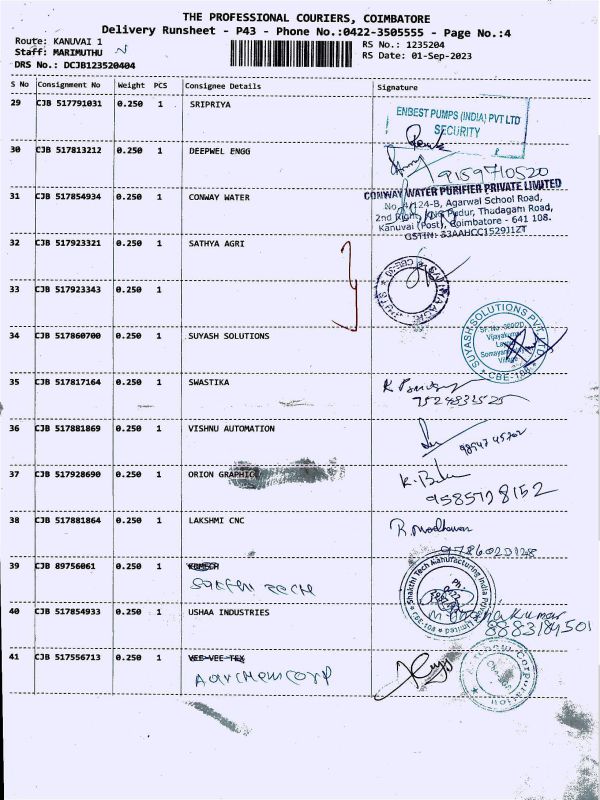 THE PROFESSIONAL COURIERS, COIMBATORE
Delivery Runsheet - P43 - Phone No.:0422-3505555 - Page No.:4
Route: KANUVAI 1
Staff: MARIMUTHU
DRS No.: DCJB123520404
RS No.: 1235204
RS Date: 01-Sep-2023
S No Consignment No Weight PCS Consignee Details Signature
29 CJB 517791031 0.250 1 SRIPRIYA
ENBEST PUMPS (INDIA) PVT LTD
SECURITY
30 CJB 517813212 0.250 1 DEEPWEL ENGG
9159710520
31 CJB 517854934 0.250 1 CONWAY WATER
CONWAY WATER PURIFIER PRIVATE LIMITED
No.4/124-B, Agarwal School Road,
Pudur, Thudagam Road,
Kanuvai (Post), Coimbatore - 641 108.
GSTIN: 33AAHCC1529J1ZT
32 CJB 517923321 0.250 1 SATHYA AGRI
33 CJB 517923343 0.250 1
34 CJB 517860700 0.250 1 SUYASH SOLUTIONS
SUYASH SOLUTIONS PVT. LTD
CBE-108
35 CJB 517817164 0.250 1 SWASTIKA
36 CJB 517881869 0.250 1 VISHNU AUTOMATION
37 CJB 517928690 0.250 1 ORION GRAPHIC
9585728152
38 CJB 517881864 0.250 1 LAKSHMI CNC
39 CJB 89756061 0.250 1
Sakthi Tech
Shakthi Tech Manufacturing India
40 CJB 517854933 0.250 1 USHAA INDUSTRIES
41 CJB 517556713 0.250 1 VEE VEE TEX
Aarchem Corp